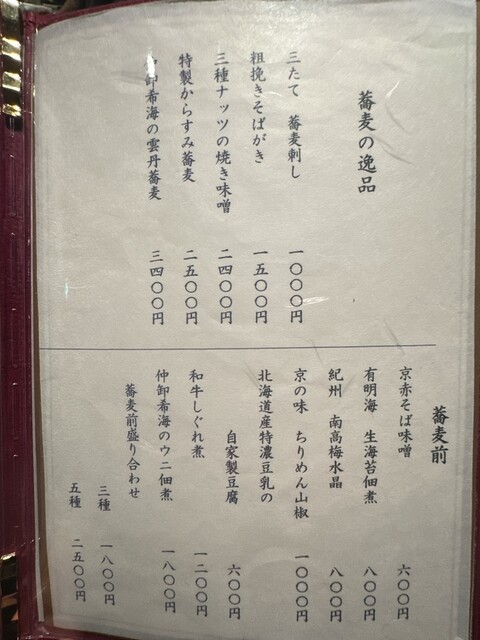 蕎麦の逸品
三たて 蕎麦刺し 一〇〇〇円
粗挽きそばがき 一五〇〇円
三種ナッツの焼き味噌 二四〇〇円
特製からすみ蕎麦 二五〇〇円
仲卸希海の雲丹蕎麦 三四〇〇円
蕎麦前
京赤そば味噌 六〇〇円
有明海 生海苔佃煮 八〇〇円
紀州 南高梅水晶 八〇〇円
京の味 ちりめん山椒 一〇〇〇円
北海道産特濃豆乳の
自家製豆腐 六〇〇円
和牛しぐれ煮 一二〇〇円
仲卸希海のウニ佃煮 一八〇〇円
蕎麦前盛り合わせ
三種 一八〇〇円
五種 二五〇〇円